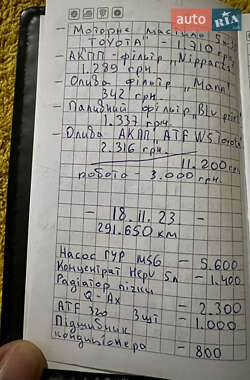 auto RIA .com
– Моторне мастило 5w30
TOYOTA" – 1.710 грн.
– АКПП – фільтр „Nipparts"
1.289 грн.
– Олива фільтр „Mann"
342 грн.
– Паливний фільтр „Blu print"
1.337 грн.
– Олива АКПП „ATF WS Toyota"
2.316 грн.
11.200 грн.
робота – 3.000 грн.
– 18.11.23 –
291.650 км
Насос ГУР М56 – 5.600
Концентрат Нерv 5л – 1.400
Радіатор пічки
Q-Ax – 2.300
ATF 320 3шт – 1.000
Підшибник
кондиціонера – 800